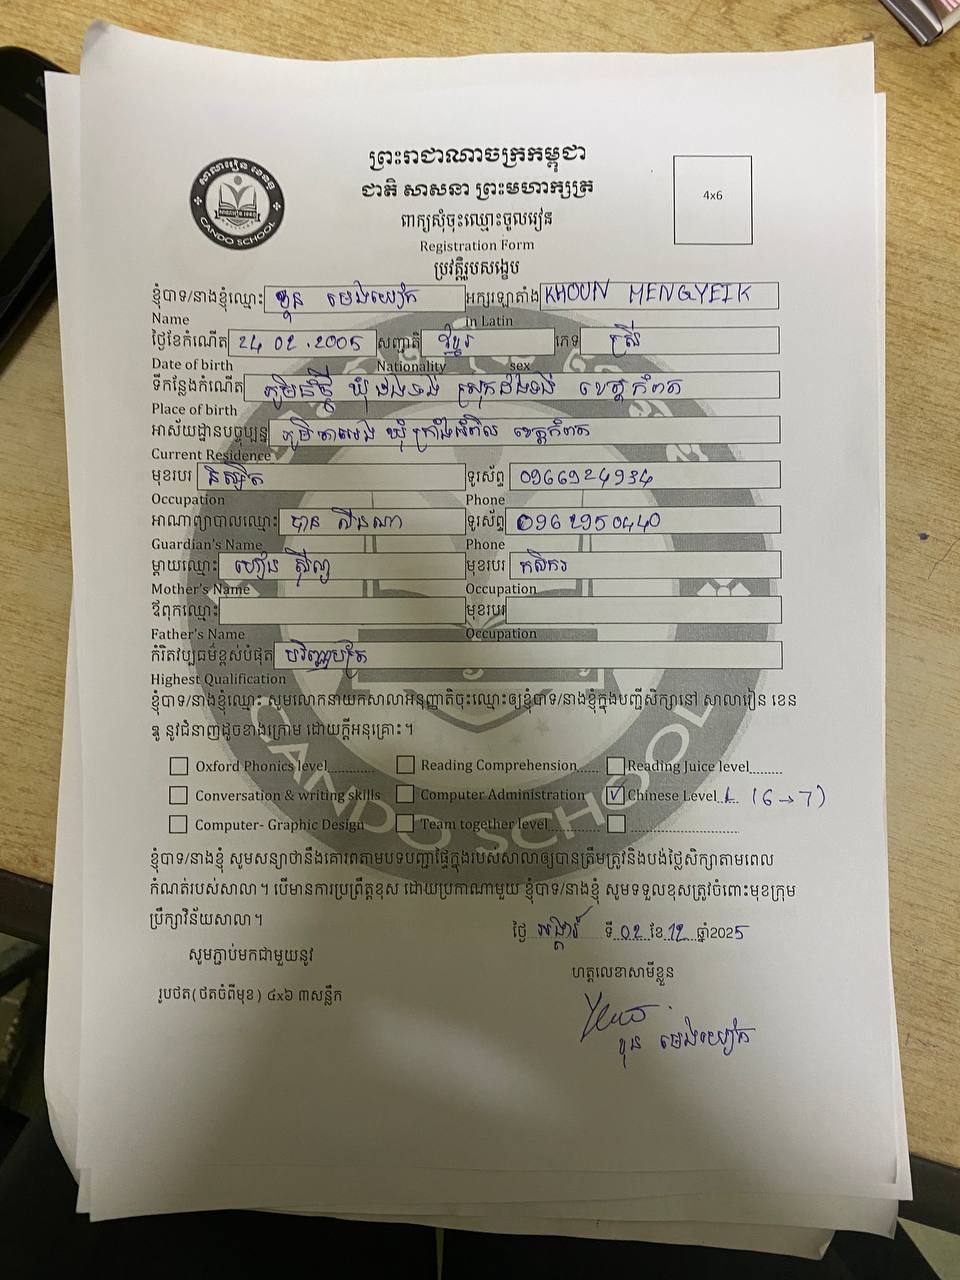 ព្រះរាជាណាចក្រកម្ពុជា
ជាតិ សាសនា ព្រះមហាក្សត្រ
ពាក្យសុំចុះឈ្មោះចូលរៀន
Registration Form
ប្រវត្តិរូបសង្ខេប
4x6
សាលារៀន ខេនឌូ
CANDO SCHOOL
ខ្ញុំបាទ/នាងខ្ញុំឈ្មោះ ឃួន ម៉េងយៀក អក្សរឡាតាំង KHOUN MENGYEIK
Name in Latin
ថ្ងៃខែកំណើត 24 02 .2005 សញ្ជាតិ ខ្មែរ ភេទ ស្រី
Date of birth Nationality sex
ទីកន្លែងកំណើត ឃុំ ដងទង់ ស្រុកដងទង់ ខេត្តកំពត
Place of birth
អាស័យដ្ឋានបច្ចុប្បន្ន ភូមិ ឃុំ ខេត្តកំពត
Current Residence
មុខរបរ និស្សិត ទូរស័ព្ទ 0966924934
Occupation Phone
អាណាព្យាបាលឈ្មោះ បាន ស៊ីនណា ទូរស័ព្ទ 0962950440
Guardian's Name Phone
ម្តាយឈ្មោះ មុខរបរ កសិករ
Mother's Name Occupation
ឪពុកឈ្មោះ មុខរបរ
Father's Name Occupation
កំរិតវប្បធម៌ខ្ពស់បំផុត បរិញ្ញាបត្រ
Highest Qualification
ខ្ញុំបាទ/នាងខ្ញុំឈ្មោះ សូមលោកនាយកសាលាអនុញ្ញាតិចុះឈ្មោះឲ្យខ្ញុំបាទ/នាងខ្ញុំក្នុងបញ្ជីសិក្សានៅ សាលារៀន ខេន
ឌូ នូវជំនាញដូចខាងក្រោម ដោយក្តីអនុគ្រោះ។
Oxford Phonics level.......... Reading Comprehension...... Reading Juice level........
Conversation & writing skills Computer Administration ✓ Chinese Level 1 (6→7)
Computer- Graphic Design Team together level..........
ខ្ញុំបាទ/នាងខ្ញុំ សូមសន្យាថានឹងគោរពតាមបទបញ្ជាផ្ទៃក្នុងរបស់សាលាឲ្យបានត្រឹមត្រូវនិងបង់ថ្លៃសិក្សាតាមពេល
កំណត់របស់សាលា។ បើមានការប្រព្រឹត្តខុស ដោយប្រការណាមួយ ខ្ញុំបាទ/នាងខ្ញុំ សូមទទួលខុសត្រូវចំពោះមុខក្រុម
ប្រឹក្សាវិន័យសាលា។
ថ្ងៃ អង្គារ៍ ទី 02 ខែ 12 ឆ្នាំ2025
សូមភ្ជាប់មកជាមួយនូវ
ហត្ថលេខាសាមីខ្លួន
រូបថត(ថតចំពីមុខ) ៤x៦ ៣សន្លឹក
ឃួន ម៉េងយៀក